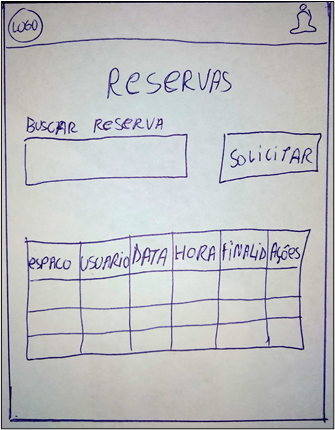 LOGO
RESERVAS
BUSCAR RESERVA
SOLICITAR
ESPACO USUARIO DATA HORA FINALID AÇÕES